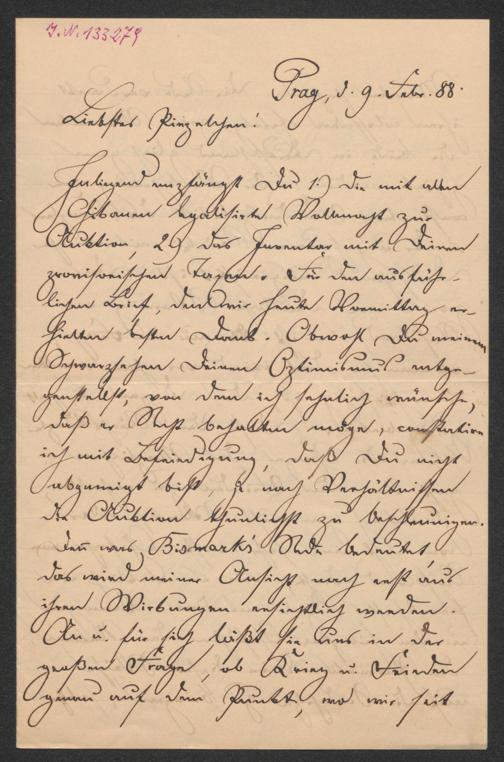 J. N. 133279
Prag, d. 9. Febr. 88.
Liebstes Pinzelchen!
Inliegend empfängst Du 1.) die mit allen
Chikanen legalisirte Vollmacht zur
Auktion, 2.) das Inventar mit Deinen
provisorischen Taxen. Für den ausführ-
lichen Brief, den wir heute Vormittag er-
hielten besten Dank. Obwohl Du meinem
Schwarzsehen Deinen Optimismus entge-
genstellst, von dem ich sehnlich wünsche,
daß er Recht behalten möge, constatire
ich mit Befriedigung, daß Du nicht
abgeneigt bist, je nach Verhältnissen
die Auktion thunlichst zu beschleunigen.
Den was Bismark's Rede bedeutet,
das wird meiner Ansicht nach erst aus
ihren Wirkungen ersichtlich werden.
An u. für sich läßt sie uns in der
großen Frage, ob Krieg u. Frieden
genau auf dem Punkt, wo wir seit